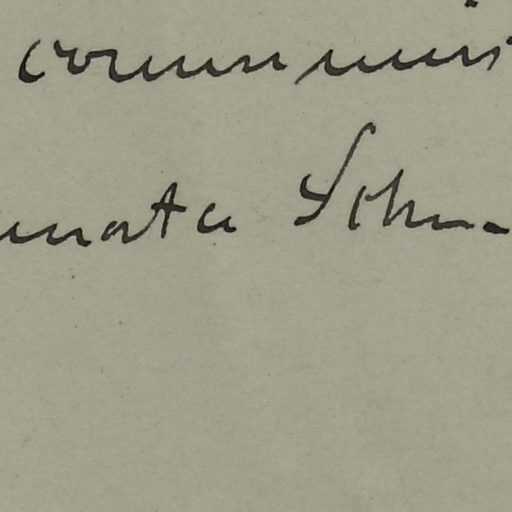 communis
nata Schm.